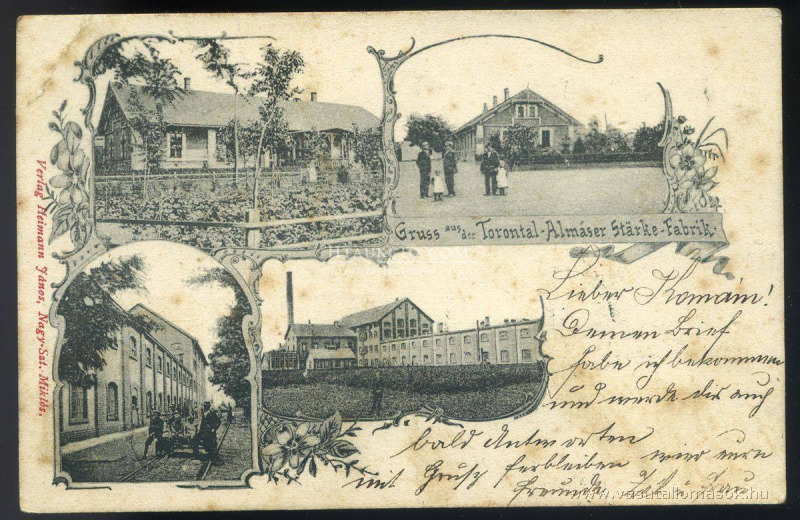 Gruss aus der Torontal-Almáser Stärke-Fabrik.
Verlag Heimann János, Nagy-Szt.-Miklós.
Lieber Komain!
Deinen Brief
habe ich bekommen
und werde dir auch
bald Antworten
mit Grusz ferbleiben wier eure
Freunde
www.vasutallomasok.hu